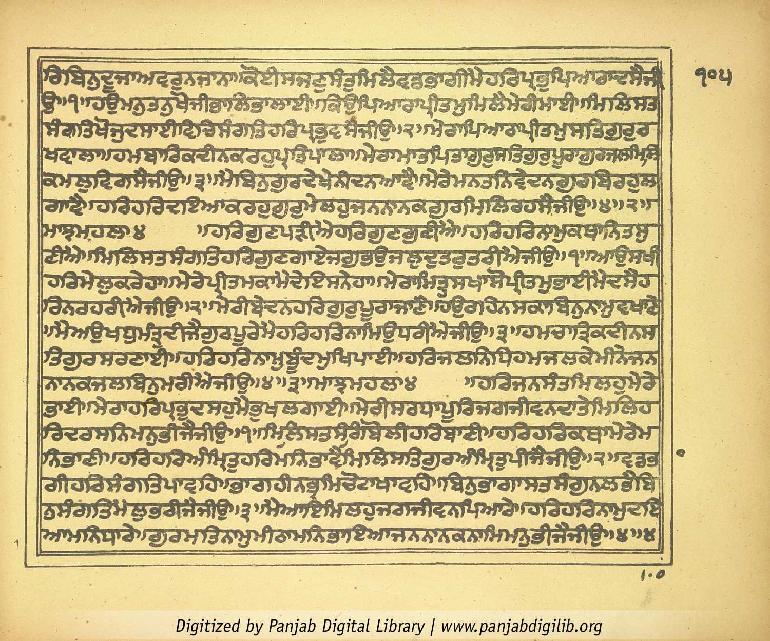 ਰਿਬਿਨੁਦੂਜਾਅਵਰੁਨਜਾਨਾ॥ਕੋਈਸਜਣੁਸੰਤੁਮਿਲੈਵਡਭਾਗੀਮੈਹਰਿਪ੍ਰਭੁਪਿਆਰਾਦਸੈਜੀ ੧੦੫
ਉ॥੧॥ਹਉਮਨੁਤਨੁਖੋਜੀਭਾਲਿਭਾਲਾਈ॥ਕਿਉਪਿਆਰਾਪ੍ਰੀਤਮੁਮਿਲੈਮੇਰੀਮਾਈ॥ਮਿਲਿਸਤ
ਸੰਗਤਿਖੋਜੁਦਸਾਈਵਿਚਿਸੰਗਤਿਹਰਿਪ੍ਰਭੁਵਸੈਜੀਉ॥੨॥ਮੇਰਾਪਿਆਰਾਪ੍ਰੀਤਮੁਸਤਿਗੁਰੁਰ
ਖਵਾਲਾ॥ਹਮਬਾਰਿਕਦੀਨਕਰਹੁਪ੍ਰਤਿਪਾਲਾ॥ਮੇਰਾਮਾਤਪਿਤਾਗੁਰੁਸਤਿਗੁਰੁਪੂਰਾਗੁਰਜਲਮਿਲਿ
ਕਮਲੁਵਿਗਸੈਜੀਉ॥੩॥ਮੈਬਿਨੁਗੁਰਦੇਖੇਨੀਦਨਆਵੈ॥ਮੇਰੇਮਨਤਨਿਵੇਦਨਗੁਰਬਿਰਹੁਲ
ਗਾਵੈ॥ਹਰਿਹਰਿਦਇਆਕਰਹੁਗੁਰੁਮੇਲਹੁਜਨਨਾਨਕਗੁਰਮਿਲਿਰਹਸੈਜੀਉ॥੪॥੨॥
ਮਾਝਮਹਲਾ੪ ॥ਹਰਿਗੁਣਪੜੀਐਹਰਿਗੁਣਗੁਣੀਐ॥ਹਰਿਹਰਿਨਾਮੁਕਥਾਨਿਤਸੁ
ਣੀਐ॥ਮਿਲਿਸਤਸੰਗਤਿਹਰਿਗੁਣਗਾਏਜਗੁਭਉਜਲੁਦੁਤਰੁਤਰੀਐਜੀਉ॥੧॥ਆਉਸਖੀ
ਹਰਿਮੇਲੁਕਰੇਹਾ॥ਮੇਰੇਪ੍ਰੀਤਮਕਾਮੈਦੇਇਸਨੇਹਾ॥ਮੇਰਾਮਿਤ੍ਰੁਸਖਾਸੋਪ੍ਰੀਤਮੁਭਾਈਮੈਦਸੇਹ
ਰਿਨਰਹਰੀਐਜੀਉ॥੨॥ਮੇਰੀਬੇਦਨਹਰਿਗੁਰੁਪੂਰਾਜਾਣੈ॥ਹਉਰਹਿਨਸਕਾਬਿਨੁਨਾਮਵਖਾਣੇ
॥ਮੈਅਉਖਧੁਮੰਤ੍ਰੁਦੀਜੈਗੁਰਪੂਰੇਮੈਹਰਿਹਰਿਨਾਮਿਉਧਰੀਐਜੀਉ॥੩॥ਹਮਚਾਤ੍ਰਿਕਦੀਨਸ
ਤਿਗੁਰਸਰਣਾਈ॥ਹਰਿਹਰਿਨਾਮੁਬੂੰਦਮੁਖਿਪਾਈ॥ਹਰਿਜਲਨਿਧਿਹਮਜਲਕੇਮੀਨੇਜਨ
ਨਾਨਕਜਲਬਿਨੁਮਰੀਐਜੀਉ॥੪॥੩॥ਮਾਝਮਹਲਾ੪ ॥ਹਰਿਜਨਸੰਤਮਿਲਹੁਮੇਰੇ
ਭਾਈ॥ਮੇਰਾਹਰਿਪ੍ਰਭੁਦਸਹੁਮੈਭੁਖਲਗਾਈ॥ਮੇਰੀਸਰਧਾਪੂਰਿਜਗਜੀਵਨਦਾਤੇਮਿਲਿਹ
ਰਿਦਰਸਨਿਮਨੁਭੀਜੈਜੀਉ॥੧॥ਮਿਲਿਸਤਸੰਗਿਬੋਲੀਹਰਿਬਾਣੀ॥ਹਰਿਹਰਿਕਥਾਮੇਰੈਮ
ਨਿਭਾਣੀ॥ਹਰਿਹਰਿਅੰਮ੍ਰਿਤੁਹਰਿਮਨਿਭਾਵੈਮਿਲਿਸਤਿਗੁਰਅੰਮ੍ਰਿਤੁਪੀਜੈਜੀਉ॥੨॥ਵਡਭ
ਗੀਹਰਿਸੰਗਤਿਪਾਵਹਿ॥ਭਾਗਹੀਨਭ੍ਰਮਿਚੋਟਾਖਾਵਹਿ॥ਬਿਨੁਭਾਗਾਸਤਸੰਗੁਨਲਭੈਬਿ
ਨੁਸੰਗਤਿਮੈਲੁਭਰੀਜੈਜੀਉ॥੩॥ਮੈਆਇਮਿਲਹੁਜਗਜੀਵਨਪਿਆਰੇ॥ਹਰਿਹਰਿਨਾਮੁਦਇ
ਆਮਨਿਧਾਰੇ॥ਗੁਰਮਤਿਨਾਮੁਮੀਠਾਮਨਿਭਾਇਆਜਨਨਾਨਕਨਾਮਿਮਨੁਭੀਜੈਜੀਉ॥੪॥੪
੧੦੦
Digitized by Panjab Digital Library | www.panjabdigilib.org